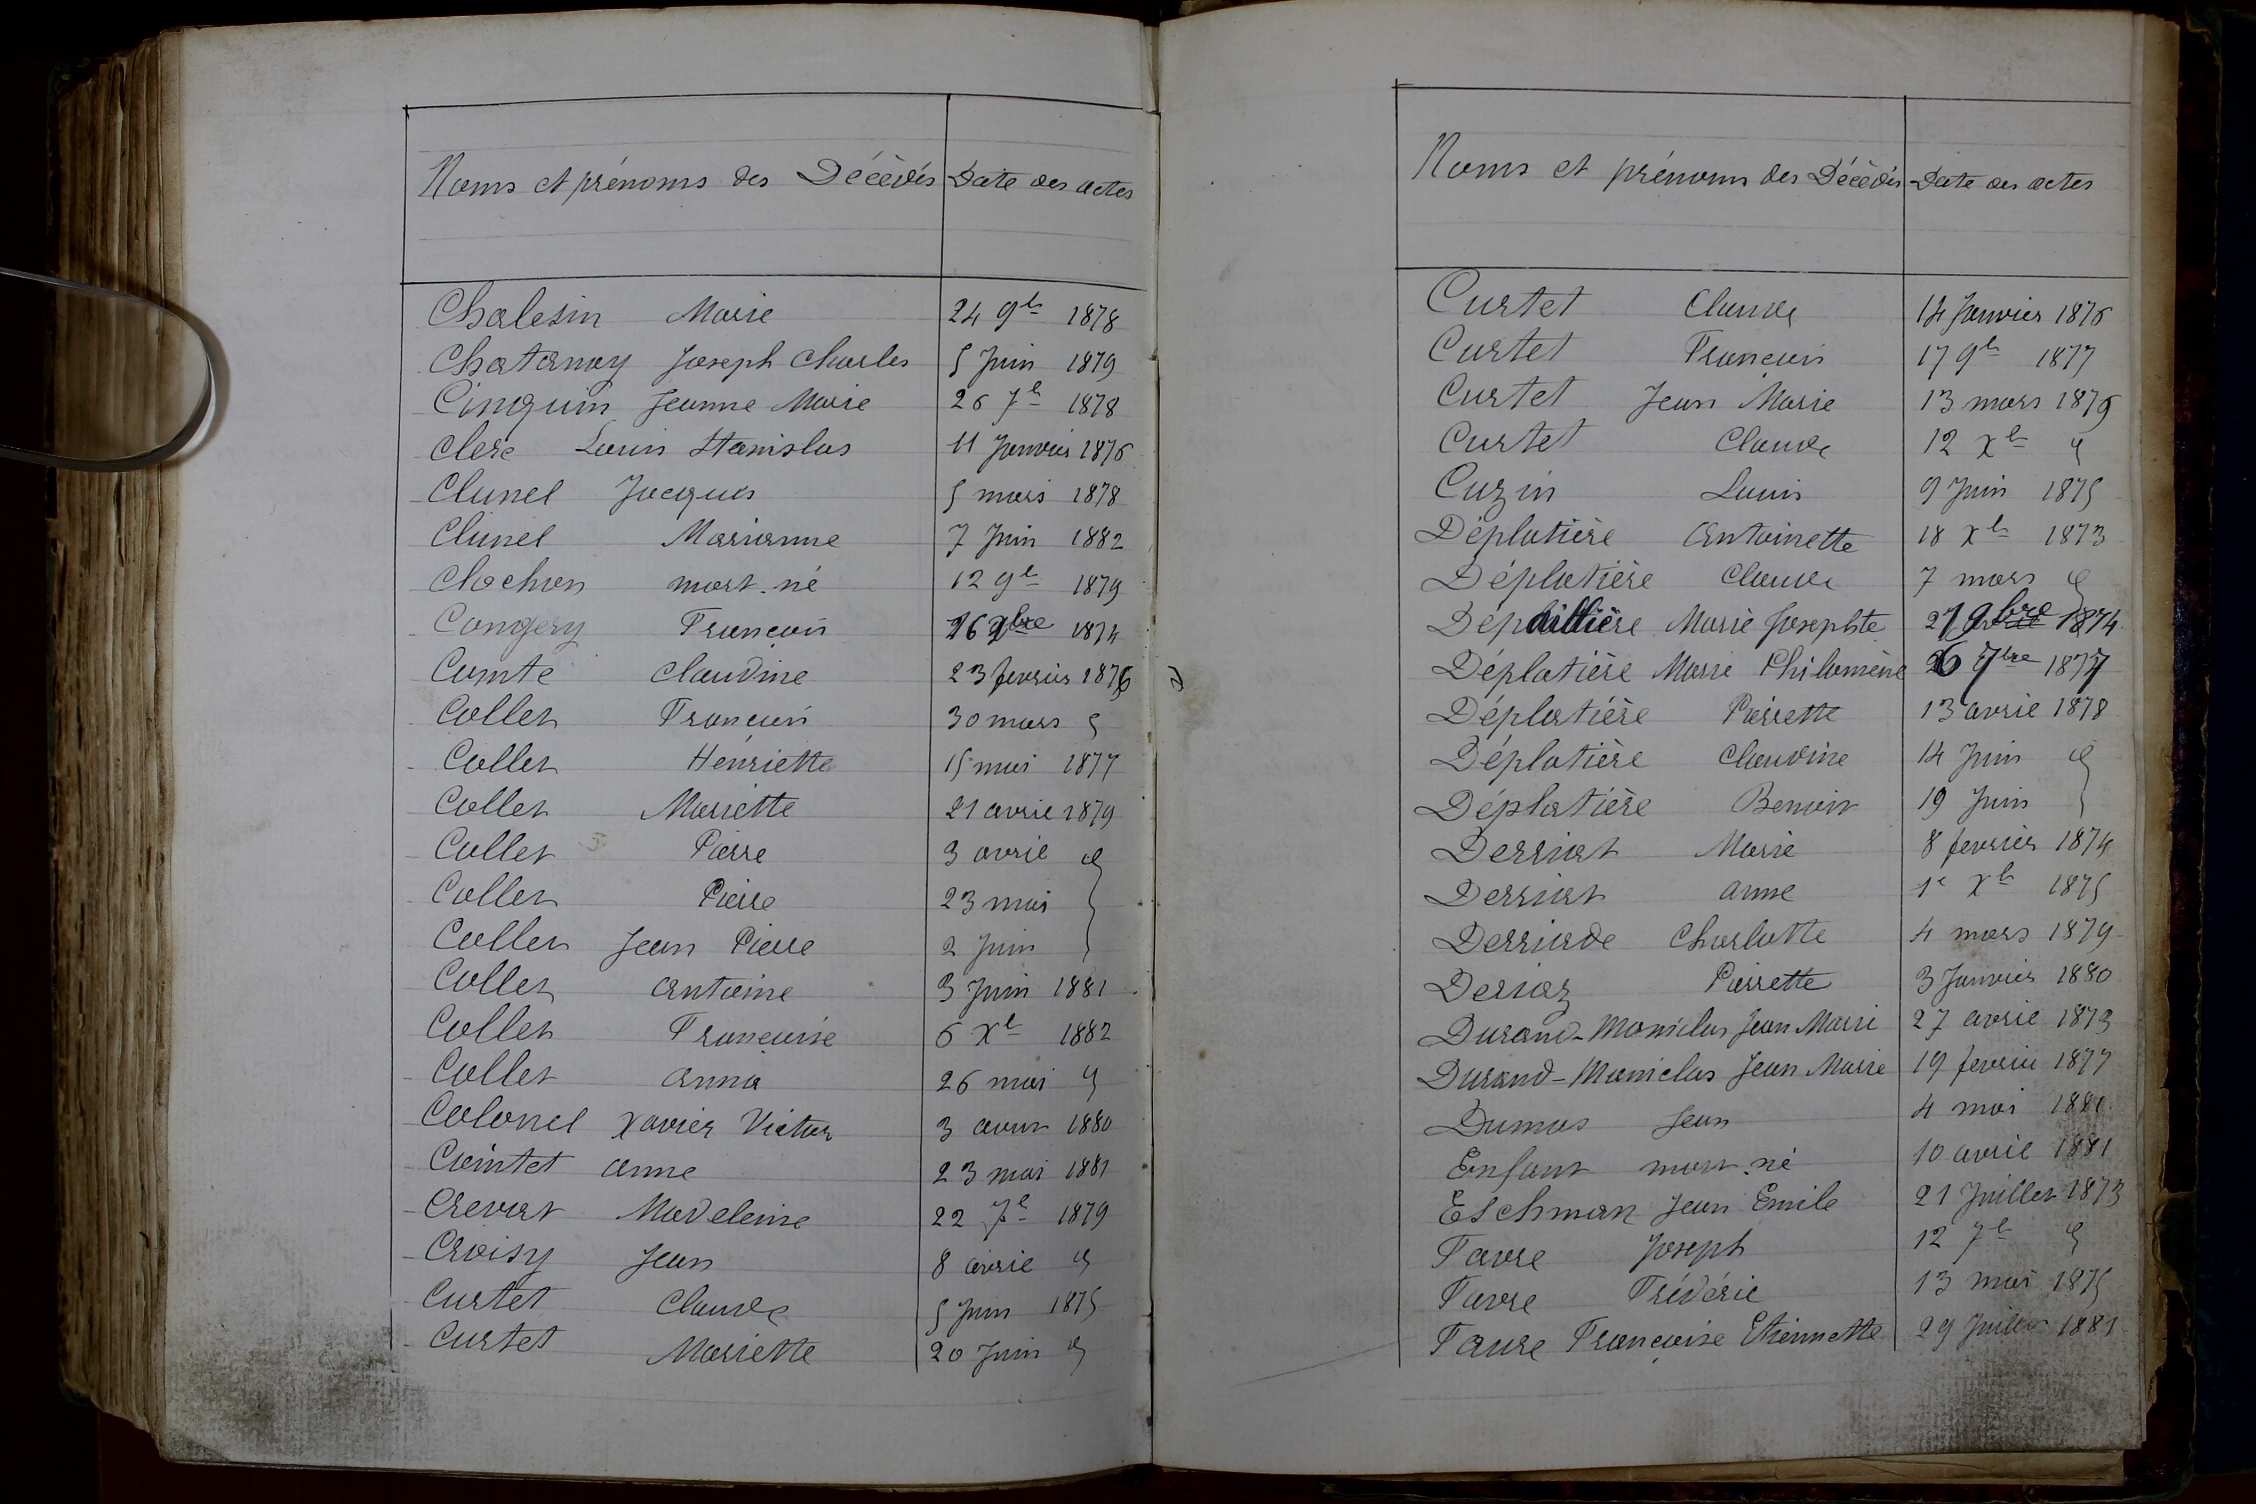 Noms et prénoms des Décédés Date des actes
Chalesin Marie 24 9b 1878
Chatanay Joseph Charles 5 Juin 1879
Cinquin Jeanne Marie 26 7b 1878
Clere Louis Stanislas 11 Janvier 1876
Clunel Jacques 5 mars 1878
Clunel Marianne 7 Juin 1882
Clochon mort-né 12 9b 1879
Congery François 26 1874
Comte Claudine 23 fevrier 1876
Collet François 30 mars "
Collet Henriette 15 mai 1877
Collet Mariette 21 avril 1879
Collet Pierre 3 avril "
Collet Pierre 23 mai
Collet Jean Pierre 2 Juin
Collet Antoine 3 Juin 1881
Collet Françoise 6 Xb 1882
Collet Anna 26 mai "
Colonel Xavier Victor 3 aout 1880
Cointet Anne 23 mai 1881
Crevat Madeleine 22 7b 1879
Croisy Jean 8 avril "
Curtet Claude 5 Juin 1875
Curtet Mariette 20 Juin "
Noms et prénoms des Décédés Date des actes
Curtet Claude 14 Janvier 1876
Curtet François 17 9b 1877
Curtet Jean Marie 13 mars 1879
Curtet Claude 12 Xb "
Cuzin Louis 9 Juin 1875
Déplatière Antoinette 18 Xb 1873
Déplatière Claude 7 mars "
Déplattière Marie Josephte 27 9bre 1874
Déplatière Marie Philomène 26 7bre 1877
Déplatière Pierrette 13 avril 1878
Déplatière Claudine 14 Juin "
Déplatière Benoit 19 Juin
Derriat Marie 8 fevrier 1874
Derriat Anne 1e Xb 1875
Derriade Charlotte 4 mars 1879
Deriaz Pierrette 3 Janvier 1880
Durand-Maniclas Jean Marie 27 avril 1873
Durand-Maniclas Jean Marie 19 fevrier 1877
Dumas Jean 4 mai 1881
Enfant mort-né 10 avril 1881
Eschman Jean Emile 21 Juillet 1873
Favre Joseph 12 7b "
Favre Fréderic 13 mai 1875
Faure Françoise Etiennette 29 Juillet 1881